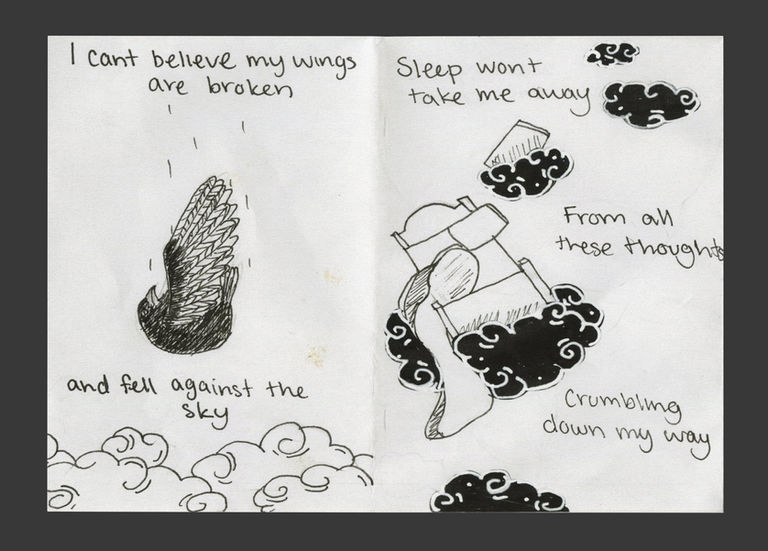 I cant believe my wings
are broken
and fell against the
sky
Sleep wont
take me away
From all
these thoughts
Crumbling
down my way